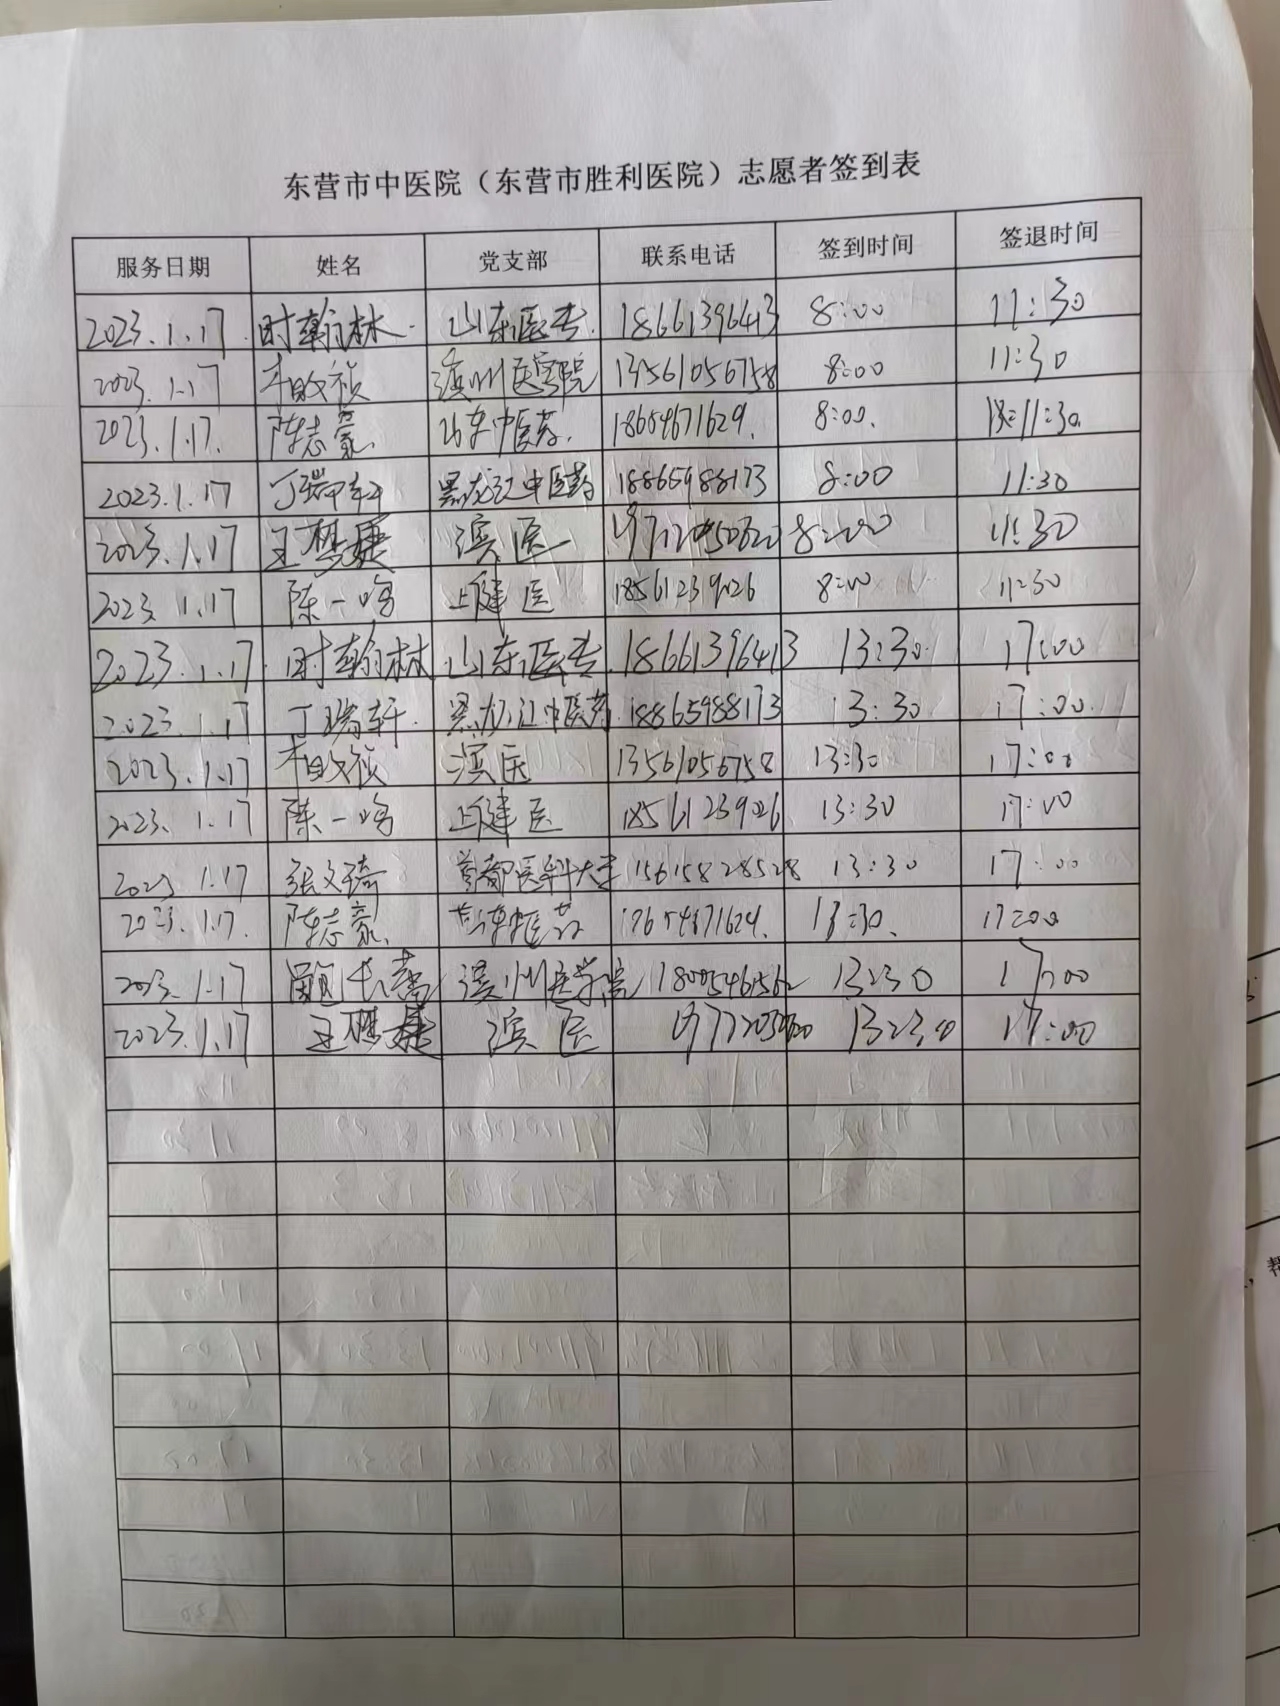 东营市中医院（东营市胜利医院）志愿者签到表
服务日期 姓名 党支部 联系电话 签到时间 签退时间
2023.1.17 时翰林 山东医专 18661396413 8:00 11:30
2023.1.17 滨州医学院 13561056758 8:00 11:30
2023.1.17. 陈志豪 山东中医药 18654671629 8:00 11:30
2023.1.17 丁瑞轩 黑龙江中医药 18865988173 8:00 11:30
2023.1.17 王 滨医 8:00 11:30
2023.1.17 陈一鸣 上健医 18561239026 8:00 11:30
2023.1.17 时翰林 山东医专 18661396413 13:30 17:00
2023.1.17 丁瑞轩 黑龙江中医药 18865988173 13:30 17:00
2023.1.17 滨医 13561056758 13:30 17:00
2023.1.17 陈一鸣 上健医 18561239026 13:30 17:00
2023.1.17 张文琦 首都医科大学 15615828528 13:30 17:00
2023.1.17. 陈志豪 山东中医药 13:30 17:00
2023.1.17 滨州医学院 13:30 17:00
2023.1.17 王 滨医 13:30 17:00